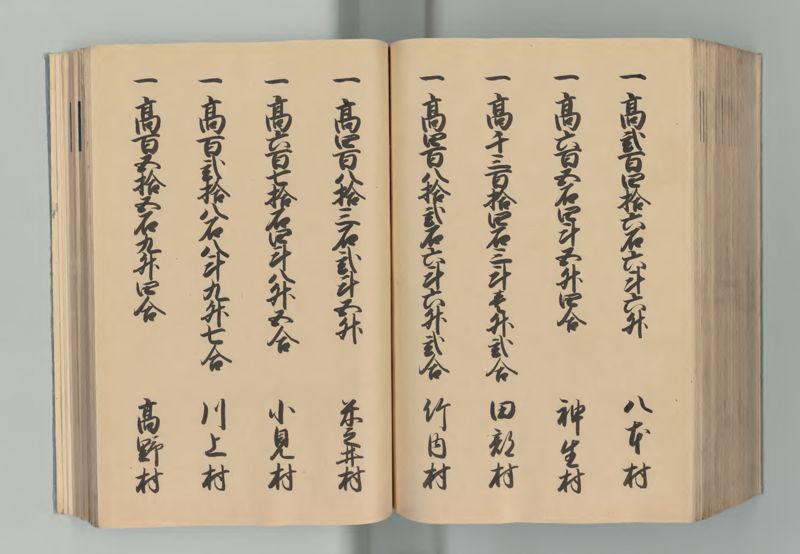 一 高弐百四拾六石六斗六升 八本村
一 高六百五石四斗五升四合 神生村
一 高千三百拾四石三斗壱升弐合 田部村
一 高四百八拾弐石六斗六升弐合 竹内村
一 高四百八拾三石弐斗五升 米之井村
一 高六百七拾石四斗八升五合 小見村
一 高百弐拾八石八斗九升七合 川上村
一 高百五拾五石九升四合 高野村